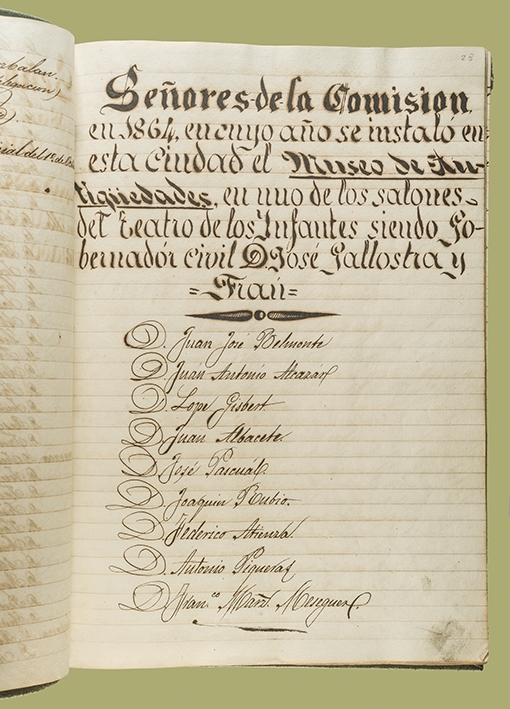 28
Señores de la Comision
en 1864, en cuyo año se instaló en
esta ciudad el Museo de An-
tigüedades, en uno de los salones
del Teatro de los Infantes siendo Go-
bernadór civil D. José Gallostra y
=Frau=
D. Juan José Belmonte
D. Juan Antonio Alcazar
D. Lope Gisbert
D. Juan Albacete
D. José Pascual
D. Joaquin Rubio.
D. Federico Atienza
D. Antonio Piqueras
D. Fran.co Marz. Meseguer